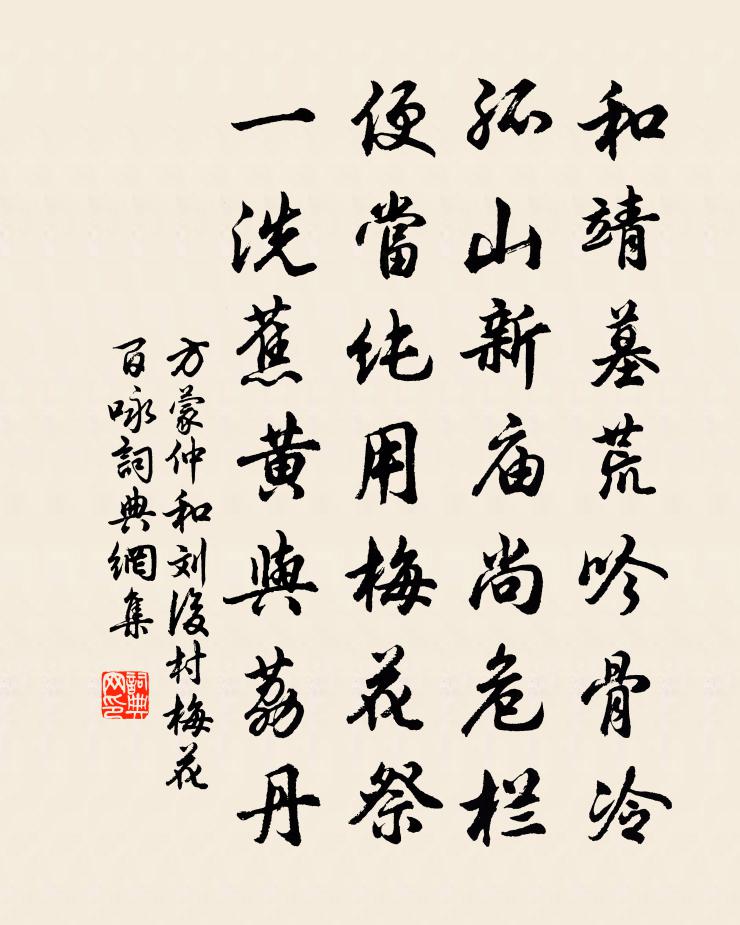 和靖墓荒吟骨冷
孤山新庙尚危栏
便當纯用梅花祭
一洗蕉黄與荔丹
方蒙仲和刘後村梅花
百咏詞典網集
詞典
网印